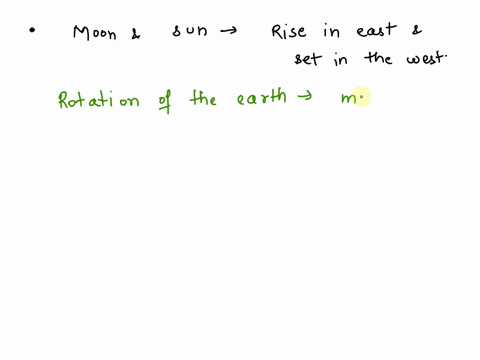 • Moon & sun → Rise in east &
set in the west.
Rotation of the earth → m